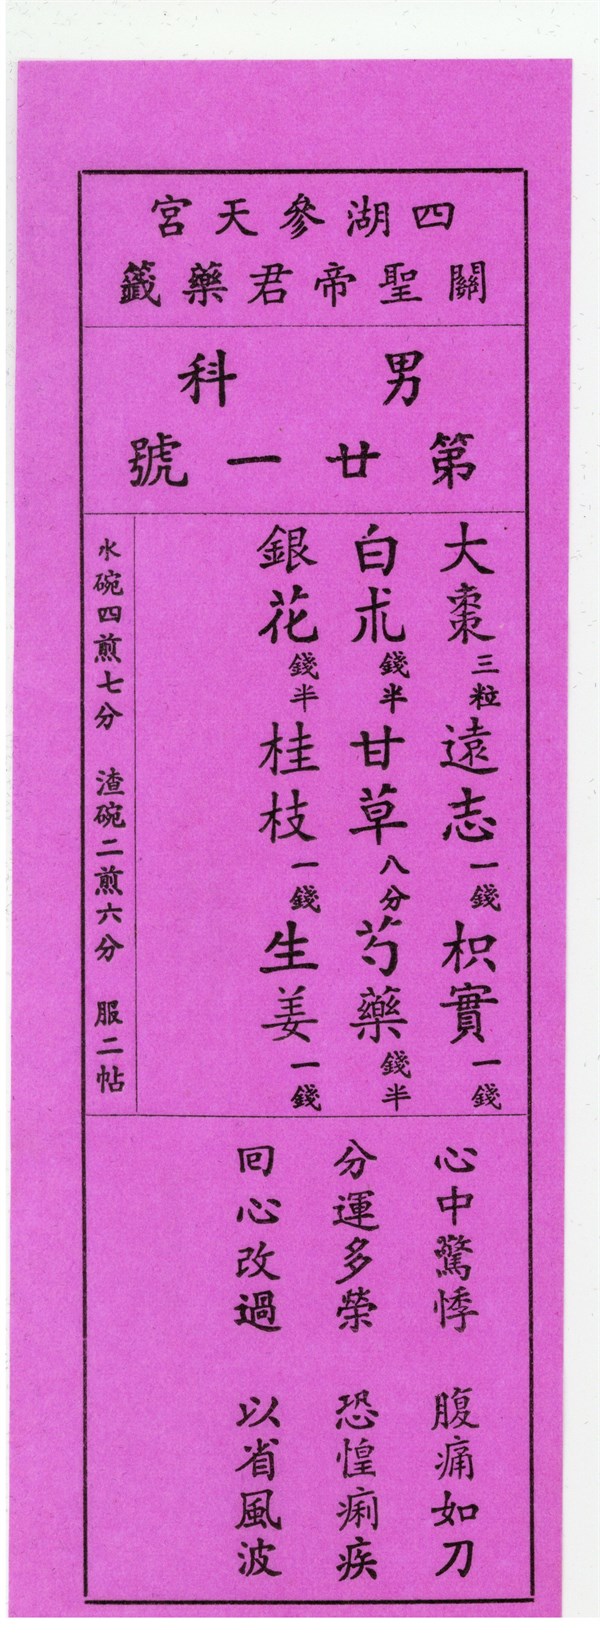 四湖參天宮
關聖帝君藥籤
男科
第廿一號
大棗三粒 遠志一錢 枳實一錢
白朮錢半 甘草八分 芍藥錢半
銀花錢半 桂枝一錢 生姜一錢
水碗四煎七分 渣碗二煎六分 服二帖
心中驚悸 腹痛如刀
分運多榮 恐惶痢疾
回心改過 以省風波